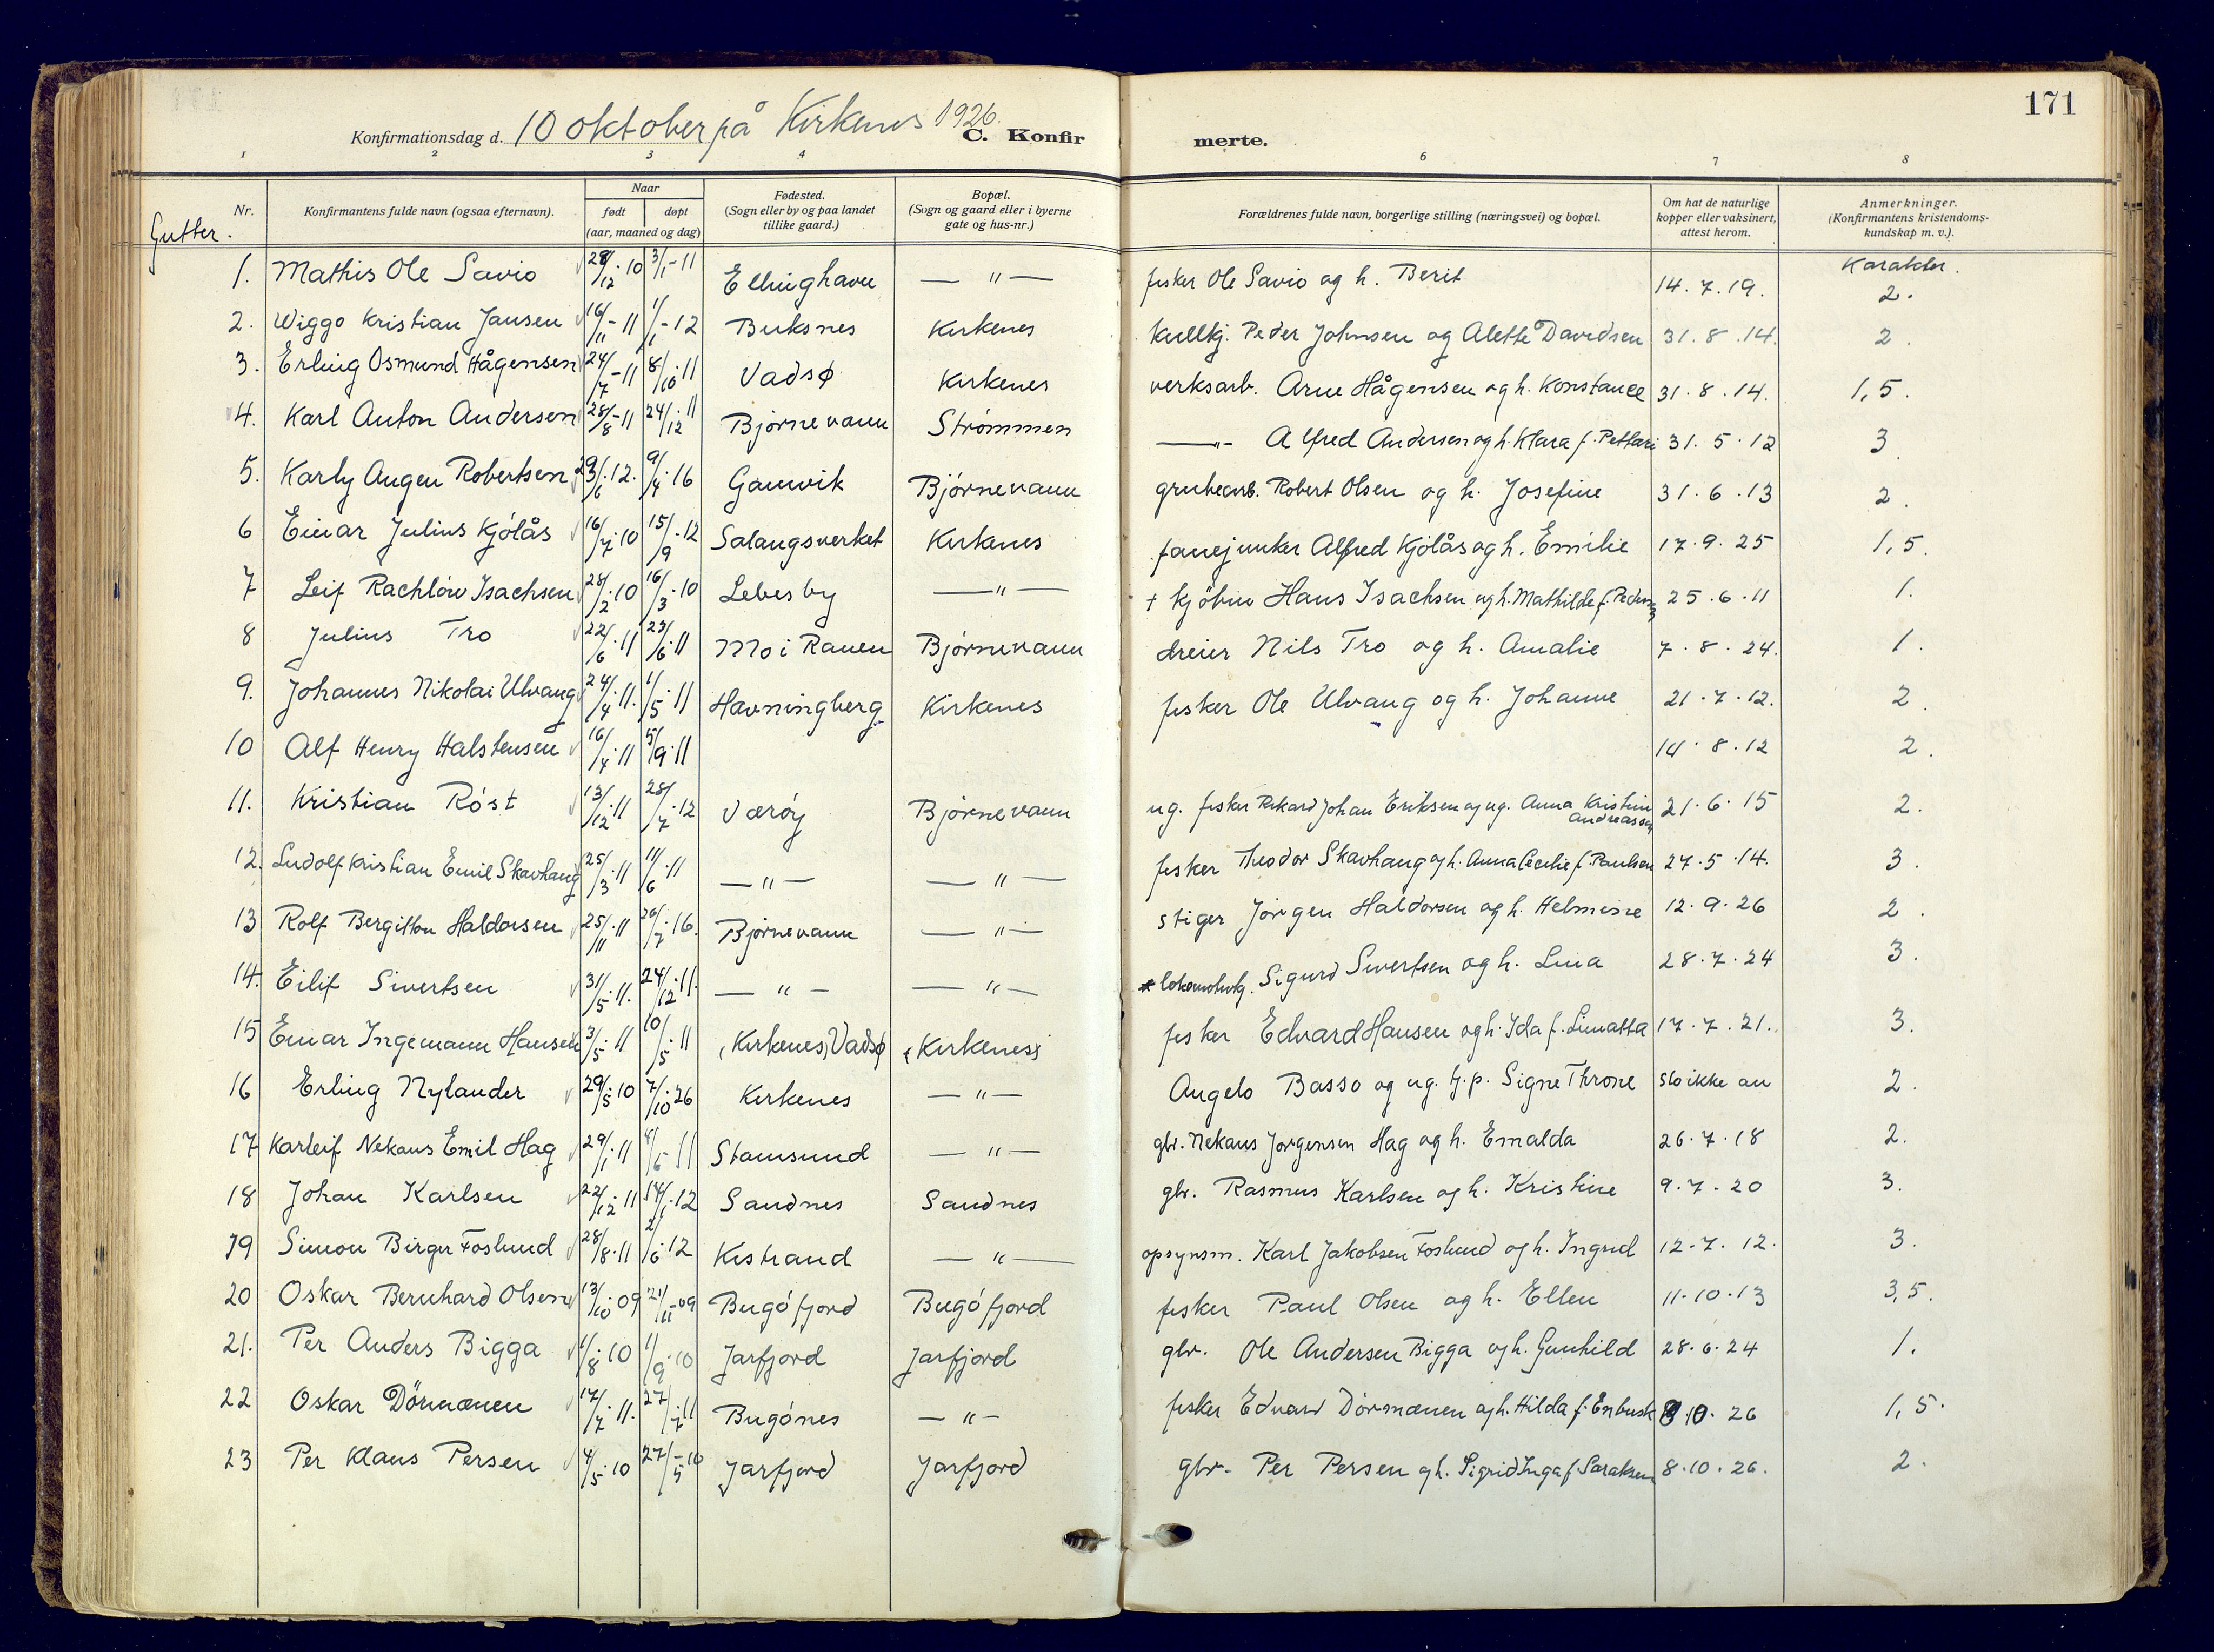 171
Konfirmationsdag d. 10 oktober på Kirkenes 1926. C. Konfirmerte.
1 2 3 4 6 7 8
Nr. Konfirmantens fulde navn (ogsaa efternavn). Naar født døpt (aar, maaned og dag) Fødested. (Sogn eller by og paa landet tillike gaard.) Bopæl. (Sogn og gaard eller i byerne gate og hus-nr.) Forældrenes fulde navn, borgerlige stilling (næringsvei) og bopæl. Om hat de naturlige kopper eller vaksinert, attest herom. Anmerkninger. (Konfirmantens kristendomskundskap m. v.).
Gutter.
Karakter.
1. Mathis Ole Savio 28/12.10 3/1-11 Ellinghavn — " — fisker Ole Savio og h. Berit 14.7.19. 2.
2. Wiggo Kristian Jansen 16/11-11 1/1-12 Buksnes Kirkenes Peder Johnsen og Alette Davidsen 31.8.14. 2.
3. Erling Osmund Hågensen 24/7-11 8/10.11 Vadsø Kirkenes verksarb. Arne Hågensen og h. Konstance 31.8.14. 1,5.
4. Karl Anton Andersen 28/8-11 24/12.11 Bjørnevann Strømmen — " — Alfred Andersen og h. Klara f. Pettari 31.5.12 3.
5. Karly Augen Robertsen 29/6.12. 9/4.16 Gamvik Bjørnevann grubearb. Robert Olsen og h. Josefine 31.6.13 2.
6 Einar Julius Kjólås 16/7.10 15/9-12 Salangsverket Kirkenes fanejunker Alfred Kjólås og h. Emilie 17.9.25 1,5.
7 Leif Rachlów Isachsen 28/2.10 16/3.10 Lebesby — " — + Kjøbm Hans Isachsen og h. Mathilde f. Pedersen 25.6.11 1.
8 Julius Tro 22/6.11 23/6.11 Mo i Ranen Bjórnevann dreier Nils Tro og h. Amalie 7.8.24. 1.
9. Johannes Nikolai Ulvang 24/4.11. 1/5.11 Havningberg Kirkenes fisker Ole Ulvang og h. Johanne 21.7.12. 2.
10 Alf Henry Halstensen 16/4.11 5/9.11 14.8.12 2.
11. Kristian Róst 13/12.11 28/7.12 Værøy Bjørnevann ug. fisker Rikard Johan Eriksen og ug. Anna Kristin Andreassen 21.6.15 2.
12. Ludolf Kristian Emil Skavhaug 25/3.11 11/6.11 — " — — " — fisker Theodor Skavhaug og h. Anna Cecilie f. Paulsen 27.5.14. 3.
13 Rolf Bergitton Haldorsen 25/11.11 26/7.16. Bjørnevann — " — stiger Jörgen Haldorsen og h. Helmine 12.9.26 2.
14. Eilif Sivertsen 31/5.11. 24/12.11. — " — — " — Sigurd Sivertsen og h. Lina 28.7.24 3.
15 Einar Ingemann Hansen 3/5.11 10/5.11 (Kirkenes) Vadsø (Kirkenes) fisker Edvard Hansen og h. Ida f. Limatta 17.7.21. 3.
16 Erling Nylander 29/5.10 7/10.26 Kirkenes — " — Angelo Basso og ug. tj.p. Signe Throne slo ikke an 2.
17 Karleif Nekans Emil Hag 29/1.11 4/6 11 Stamsund — " — gbr. Nekans Jørgensen Hag og h. Emalda 26.7.18 2.
18 Johan Karlsen 22/12.11 14/1.12 Sandnes Sandnes gbr. Rasmus Karlsen og h. Kristine 9.7.20 3.
19 Simon Birger Foslund 28/8.11 2/6.12 Kistrand — " — opsynsm. Karl Jakobsen Foslund og h. Ingrid 12.7.12. 3.
20 Oskar Bernhard Olsen 13/10.09 21/11-09 Bugófjord Bugófjord fisker Paul Olsen og h. Ellen 11.10.13 3,5.
21. Per Anders Bigga 1/8.10 1/9.10 Jarfjord Jarfjord gbr. Ole Andersen Bigga og h. Gunhild 28.6.24 1.
22 Oskar Dörmænen 17/7.11. 27/7.11 Bugónes — " — fisker Edvard Dörmænen og h. Hilda f. Enbusk 8.10.26 1,5.
23 Per Klaus Persen 4/5.10 27/5-10 Jarfjord Jarfjord gbr. Per Persen og h. Sigrid Inga f. Saraksen 8.10.26. 2.